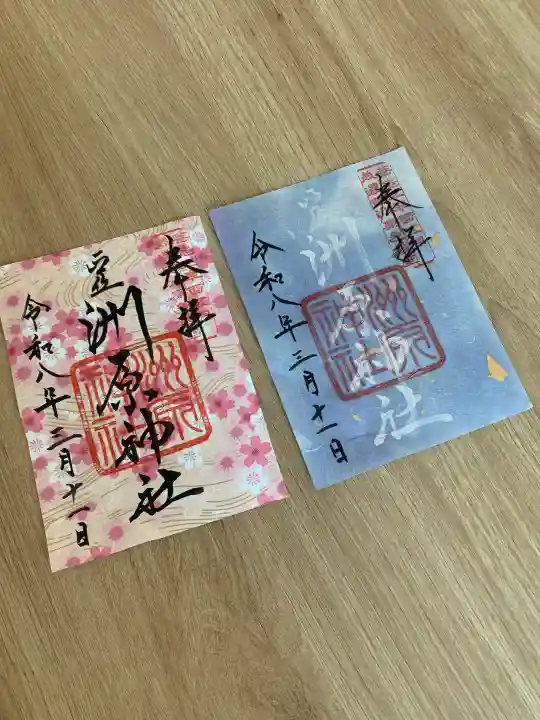 奉拝
霊洲原神社
令和八年三月十一日
奉拝
霊洲原神社
令和八年三月十一日